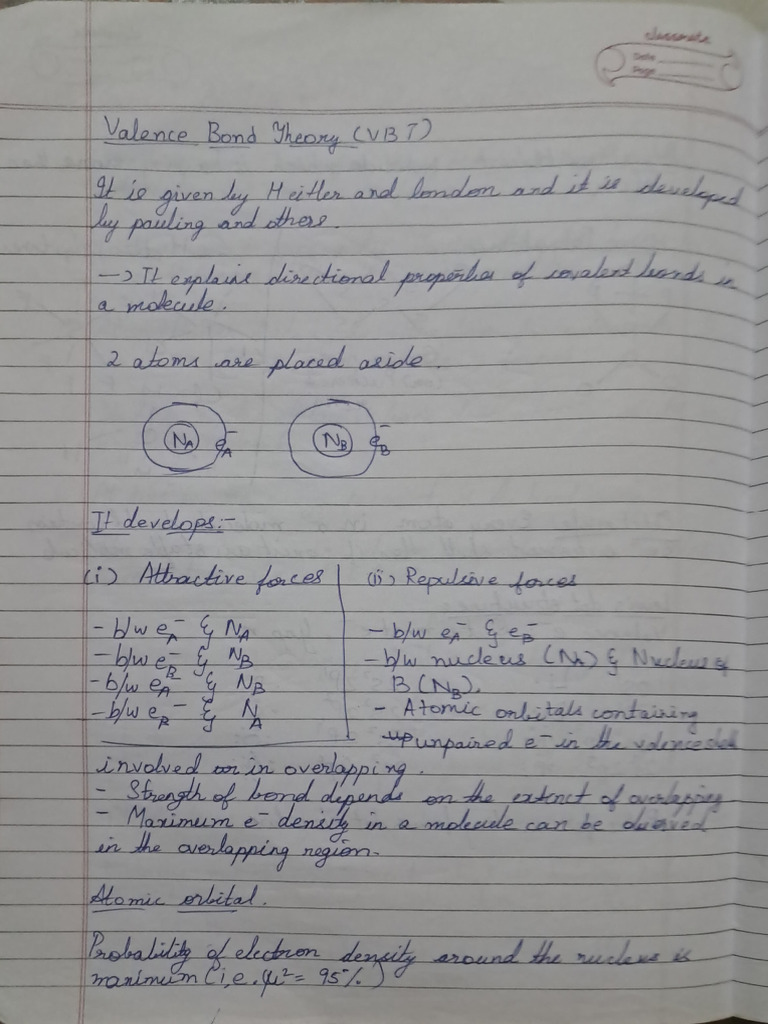 classmate
Date
Page
Valence Bond Theory (VBT)
It is given by Heitler and london and it is developed
by pauling and others.
-> It explains directional properties of covalent bonds in
a molecule.
2 atoms are placed aside.
N_A e⁻_A N_B e⁻_B
It develops:-
(i) Attractive forces
- b/w e⁻_A & N_A
- b/w e⁻_B & N_B
- b/w e⁻_A & N_B
- b/w e⁻_B & N_A
(ii) Repulsive forces
- b/w e⁻_A & e⁻_B
- b/w nucleus (N_A) & Nucleus of
B (N_B).
- Atomic orbitals containing
unpaired e⁻ in the valence shell
involved in overlapping.
- Strength of bond depends on the extenct of overlapping
- Maximum e⁻ density in a molecule can be observed
in the overlapping region.
Atomic orbital.
Probability of electron density around the nucleus is
maximum (i.e. ψ² = 95%)